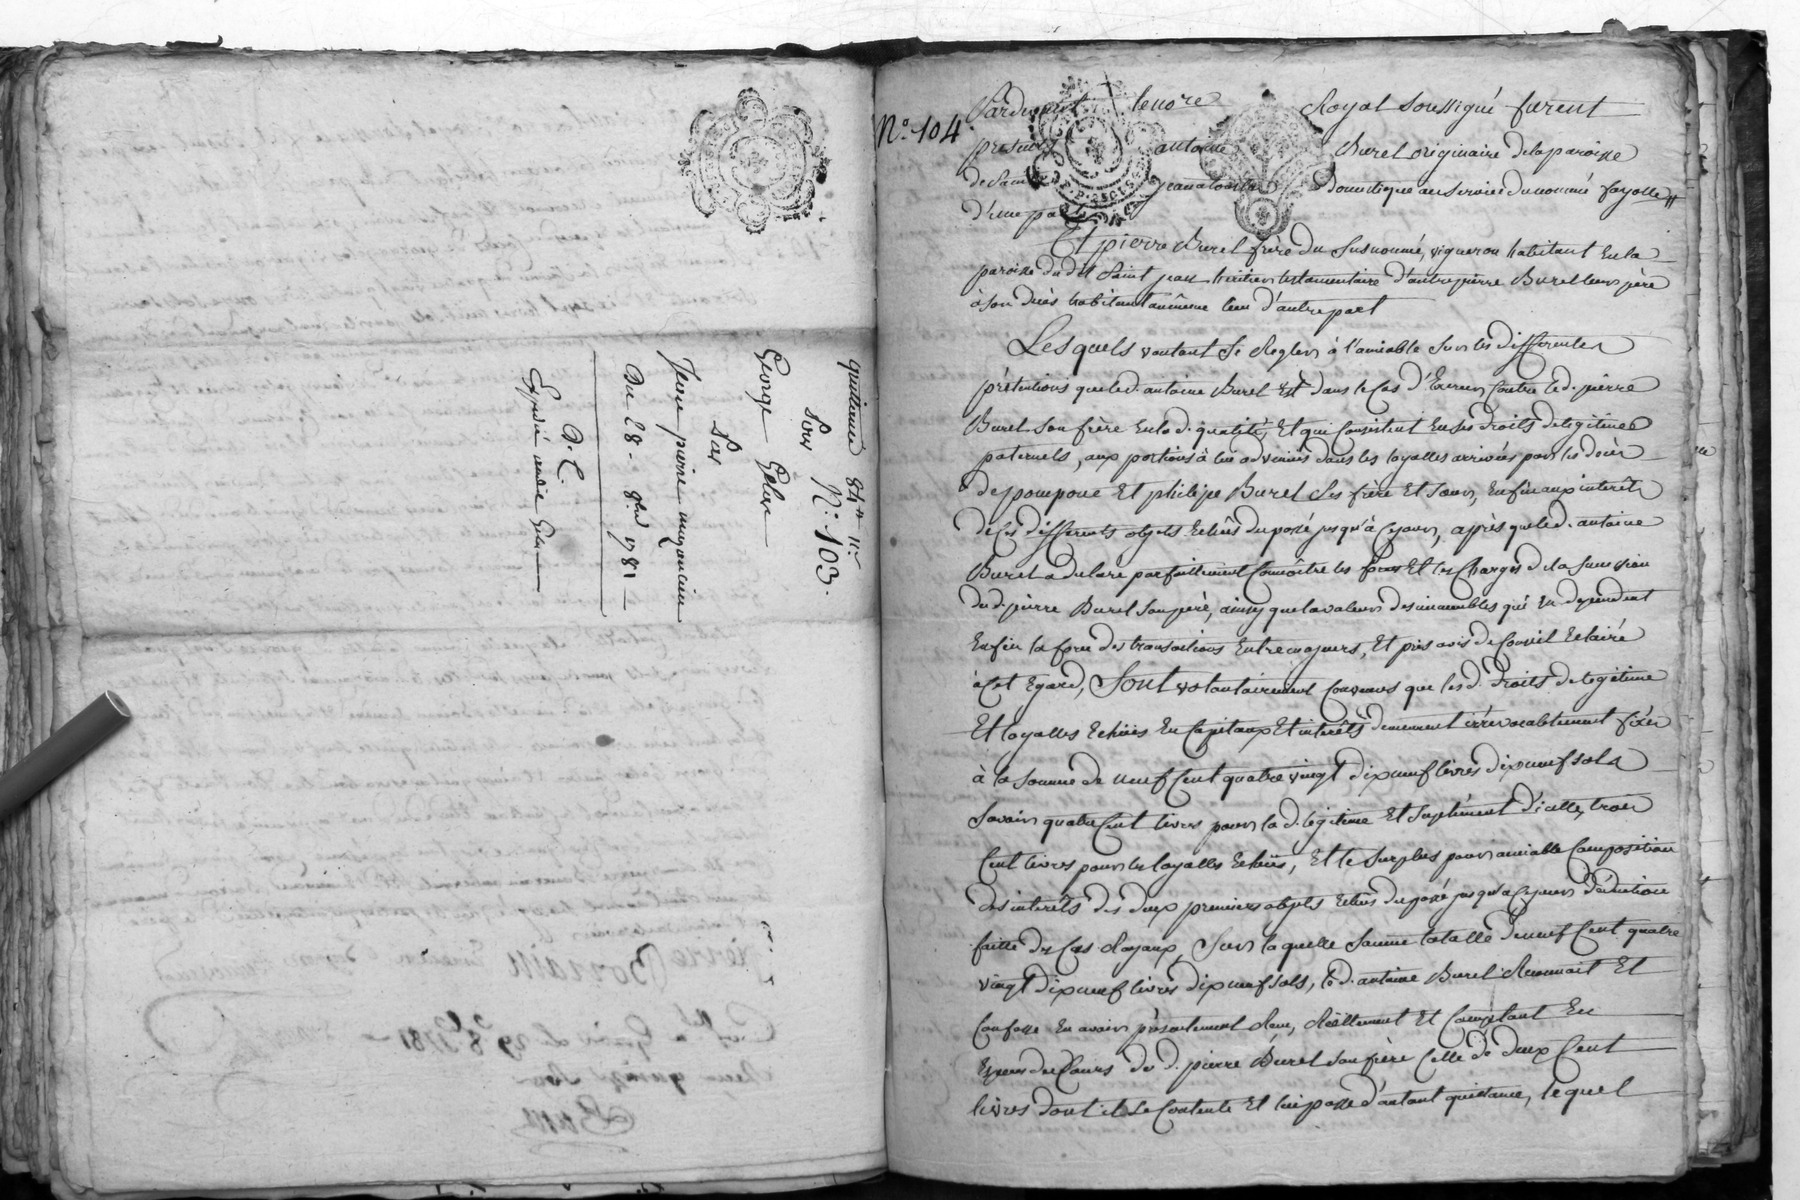 quittance 84tt 11s
Pour N.° 103.
George Gelas
Par
Jean pierre
Du 28. 8bre 1781
D. C.
Expedié audit Gelas
N.° 104.
Pardevant le no.re Royal soussigné furent
presents antoine Burel originaire de la paroisse
de Saint Jean domestique au service du nommé fayolle
d'une part
Et pierre Burel frere du susnommé, vigneron habitant en la
paroisse dudit Saint jean heritier testamentaire d'autre pierre Burel leur père
à son décès habitant au même lieu d'autre part
Lesquels voulant se Regler à l'amiable sur les differentes
prétentions que led. antoine Burel Est dans le Cas d'Exercer Contre led. pierre
Burel son frère en lad. qualité, Et qui Consistent En ses droits de legitime
paternels, aux portions à lui advenües dans les loyalles arrivées par les décès
de pompone Et philipe Burel ses frère Et sœur, Enfin aux interêts
de Ces differents objets Echus du passé jusqu'à Ce jour, après que led. antoine
Burel a declaré parfaittement Connoître les forces Et les Charges de la succession
dud. pierre Burel son père, ainsy que la valeur des immeubles qui En dependent
Enfin la force des transactions Entre majeurs, Et pris avis de Conseil Eclairé
à Cet Egard, Sont volontairement Convenus que lesd. droits de legitime
Et loyalles Echües En Capitaux Et interêts demeurent irrévocablement fixés
à la somme de neuf Cent quatre vingt dix neuf livres dix neuf sols
Savoir quatre Cent livres pour lad. legitime Et suplément d'icelle, trois
Cent livres pour les loyalles Echües, Et le surplus pour amiable Composition
des interêts des deux premiers objets Echus du passé jusqu'a Ce jour déduction
faitte des Cas Royaux, Sur laquelle somme totalle de neuf Cent quatre
vingt dix neuf livres dix neuf sols, led. antoine Burel Reconnoit Et
Confesse En avoir présentement Reçu, Réellement Et Comptant En
Especes de Cours dud. pierre Burel son frère Celle de deux Cent
livres dont il se Contente Et lui passe d'autant quittance, lequel